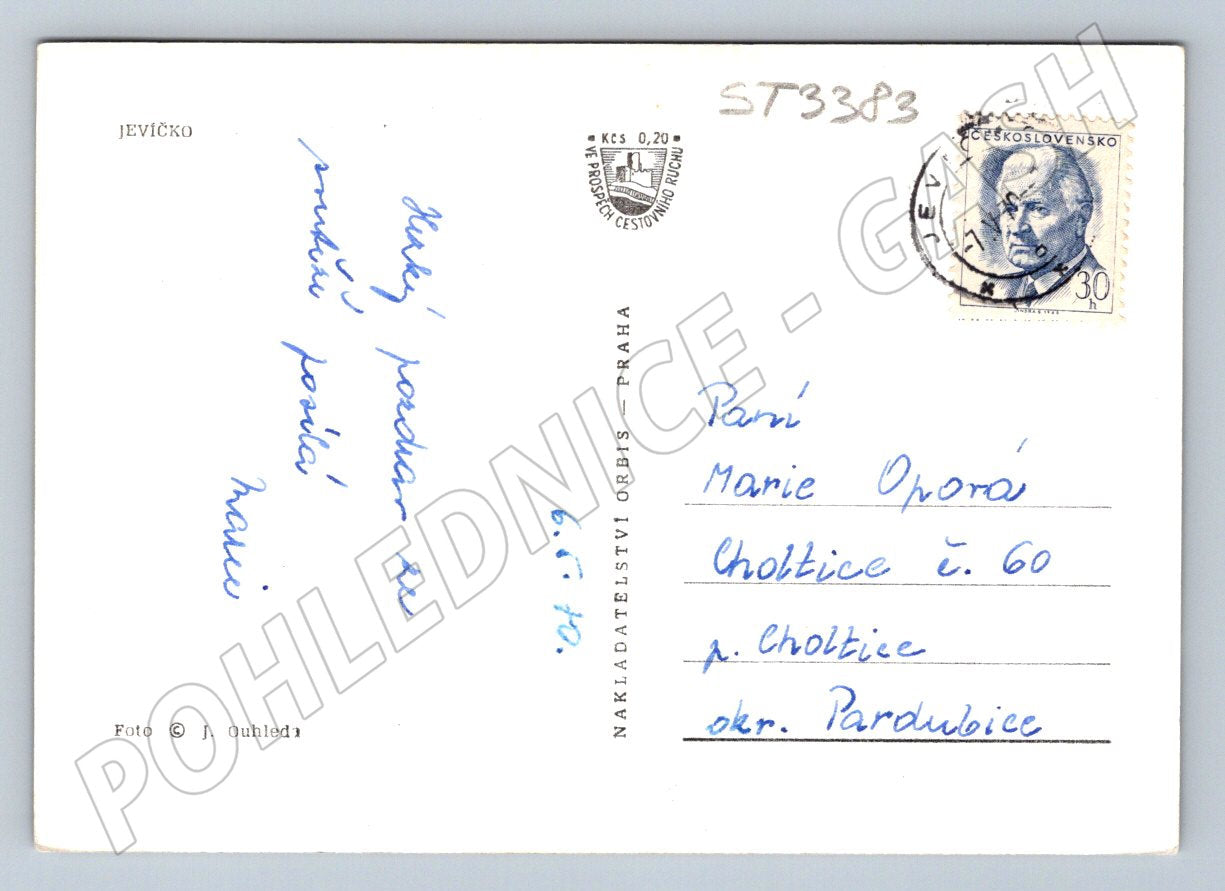 ST3383
JEVÍČKO
Kčs 0,20
VE PROSPĚCH CESTOVNÍHO RUCHU
ČESKOSLOVENSKO
30
h
JEV
Hezký pozdrav ze
soutěže posílá
Marie
6. 5. 70.
NAKLADATELSTVÍ ORBIS — PRAHA
Paní
Marie Oporá
Choltice č. 60
p. Choltice
okr. Pardubice
Foto © J. Ouhleda
POHLEDNICE - GASH